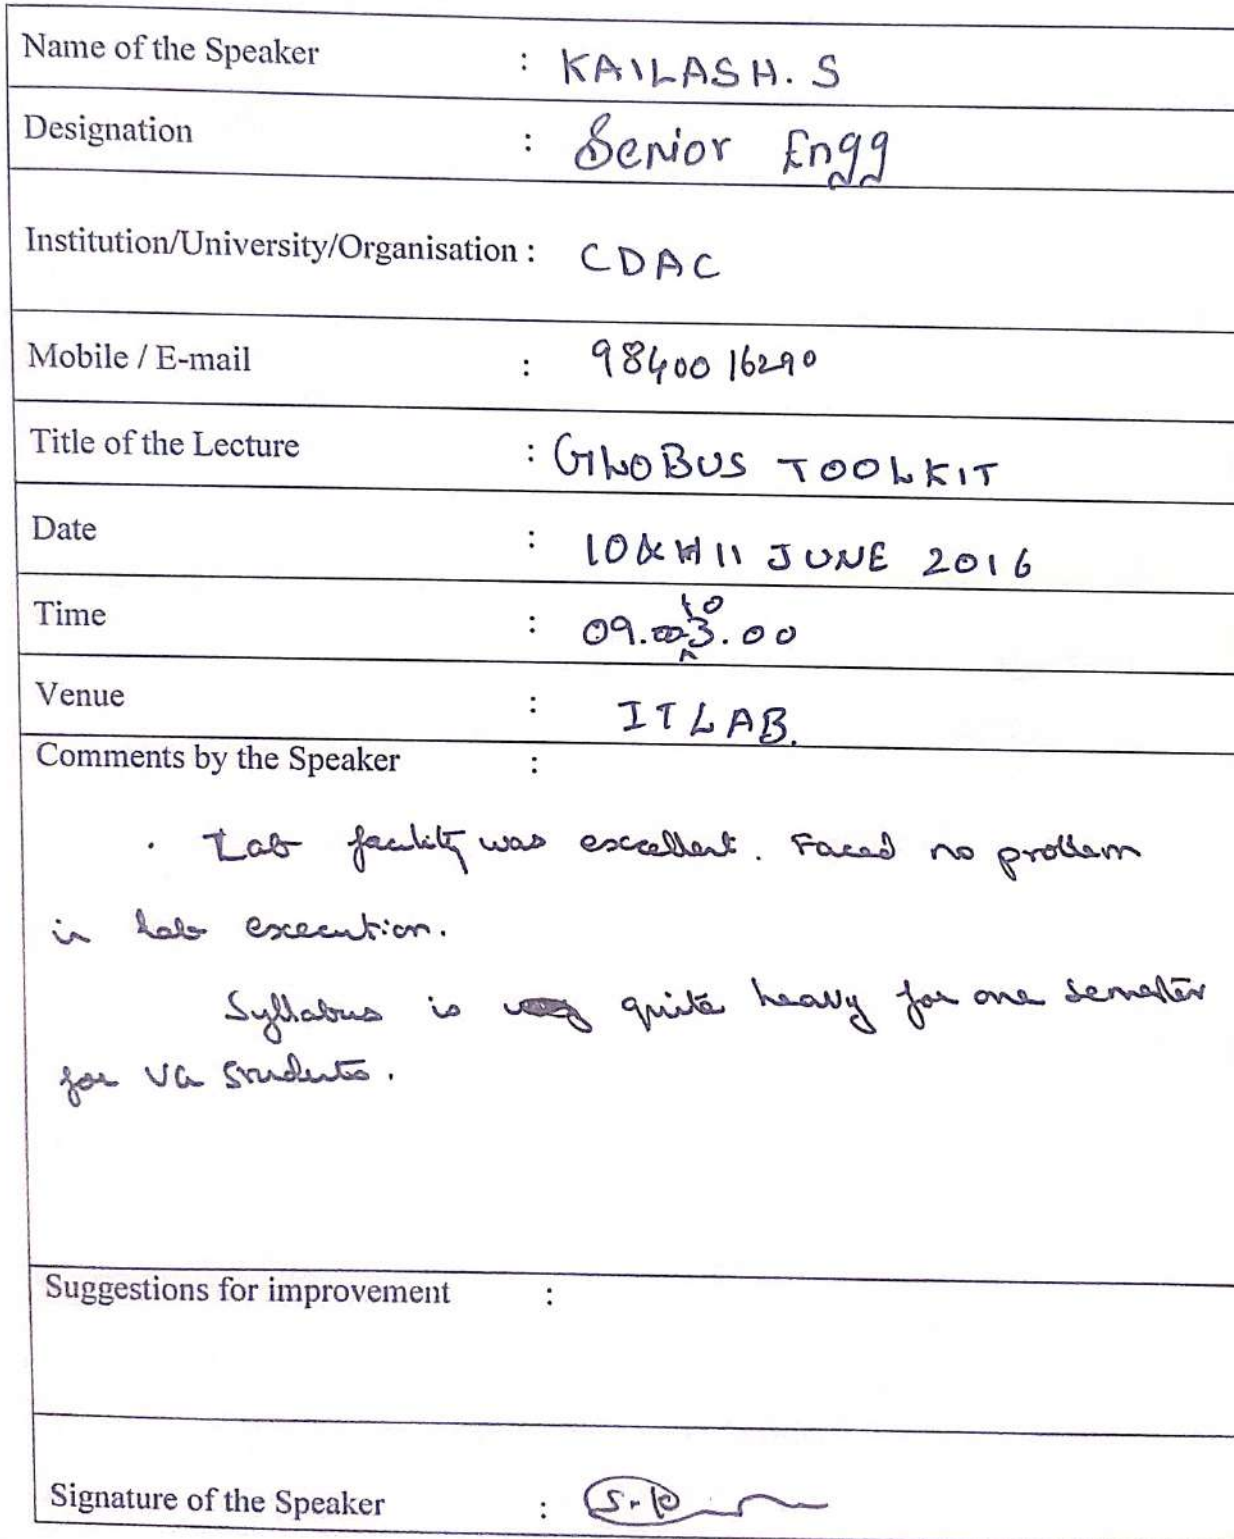 Name of the Speaker : KAILASH. S
Designation : Senior Engg
Institution/University/Organisation : CDAC
Mobile / E-mail : 98400 16290
Title of the Lecture : GLOBUS TOOLKIT
Date : 10 & 11 JUNE 2016
Time : 09.00 to 3.00
Venue : IT LAB.
Comments by the Speaker :
. Lab facility was excellent. Faced no problem
in lab execution.
Syllabus is quite heavy for one semester
for UG students.
Suggestions for improvement :
Signature of the Speaker :